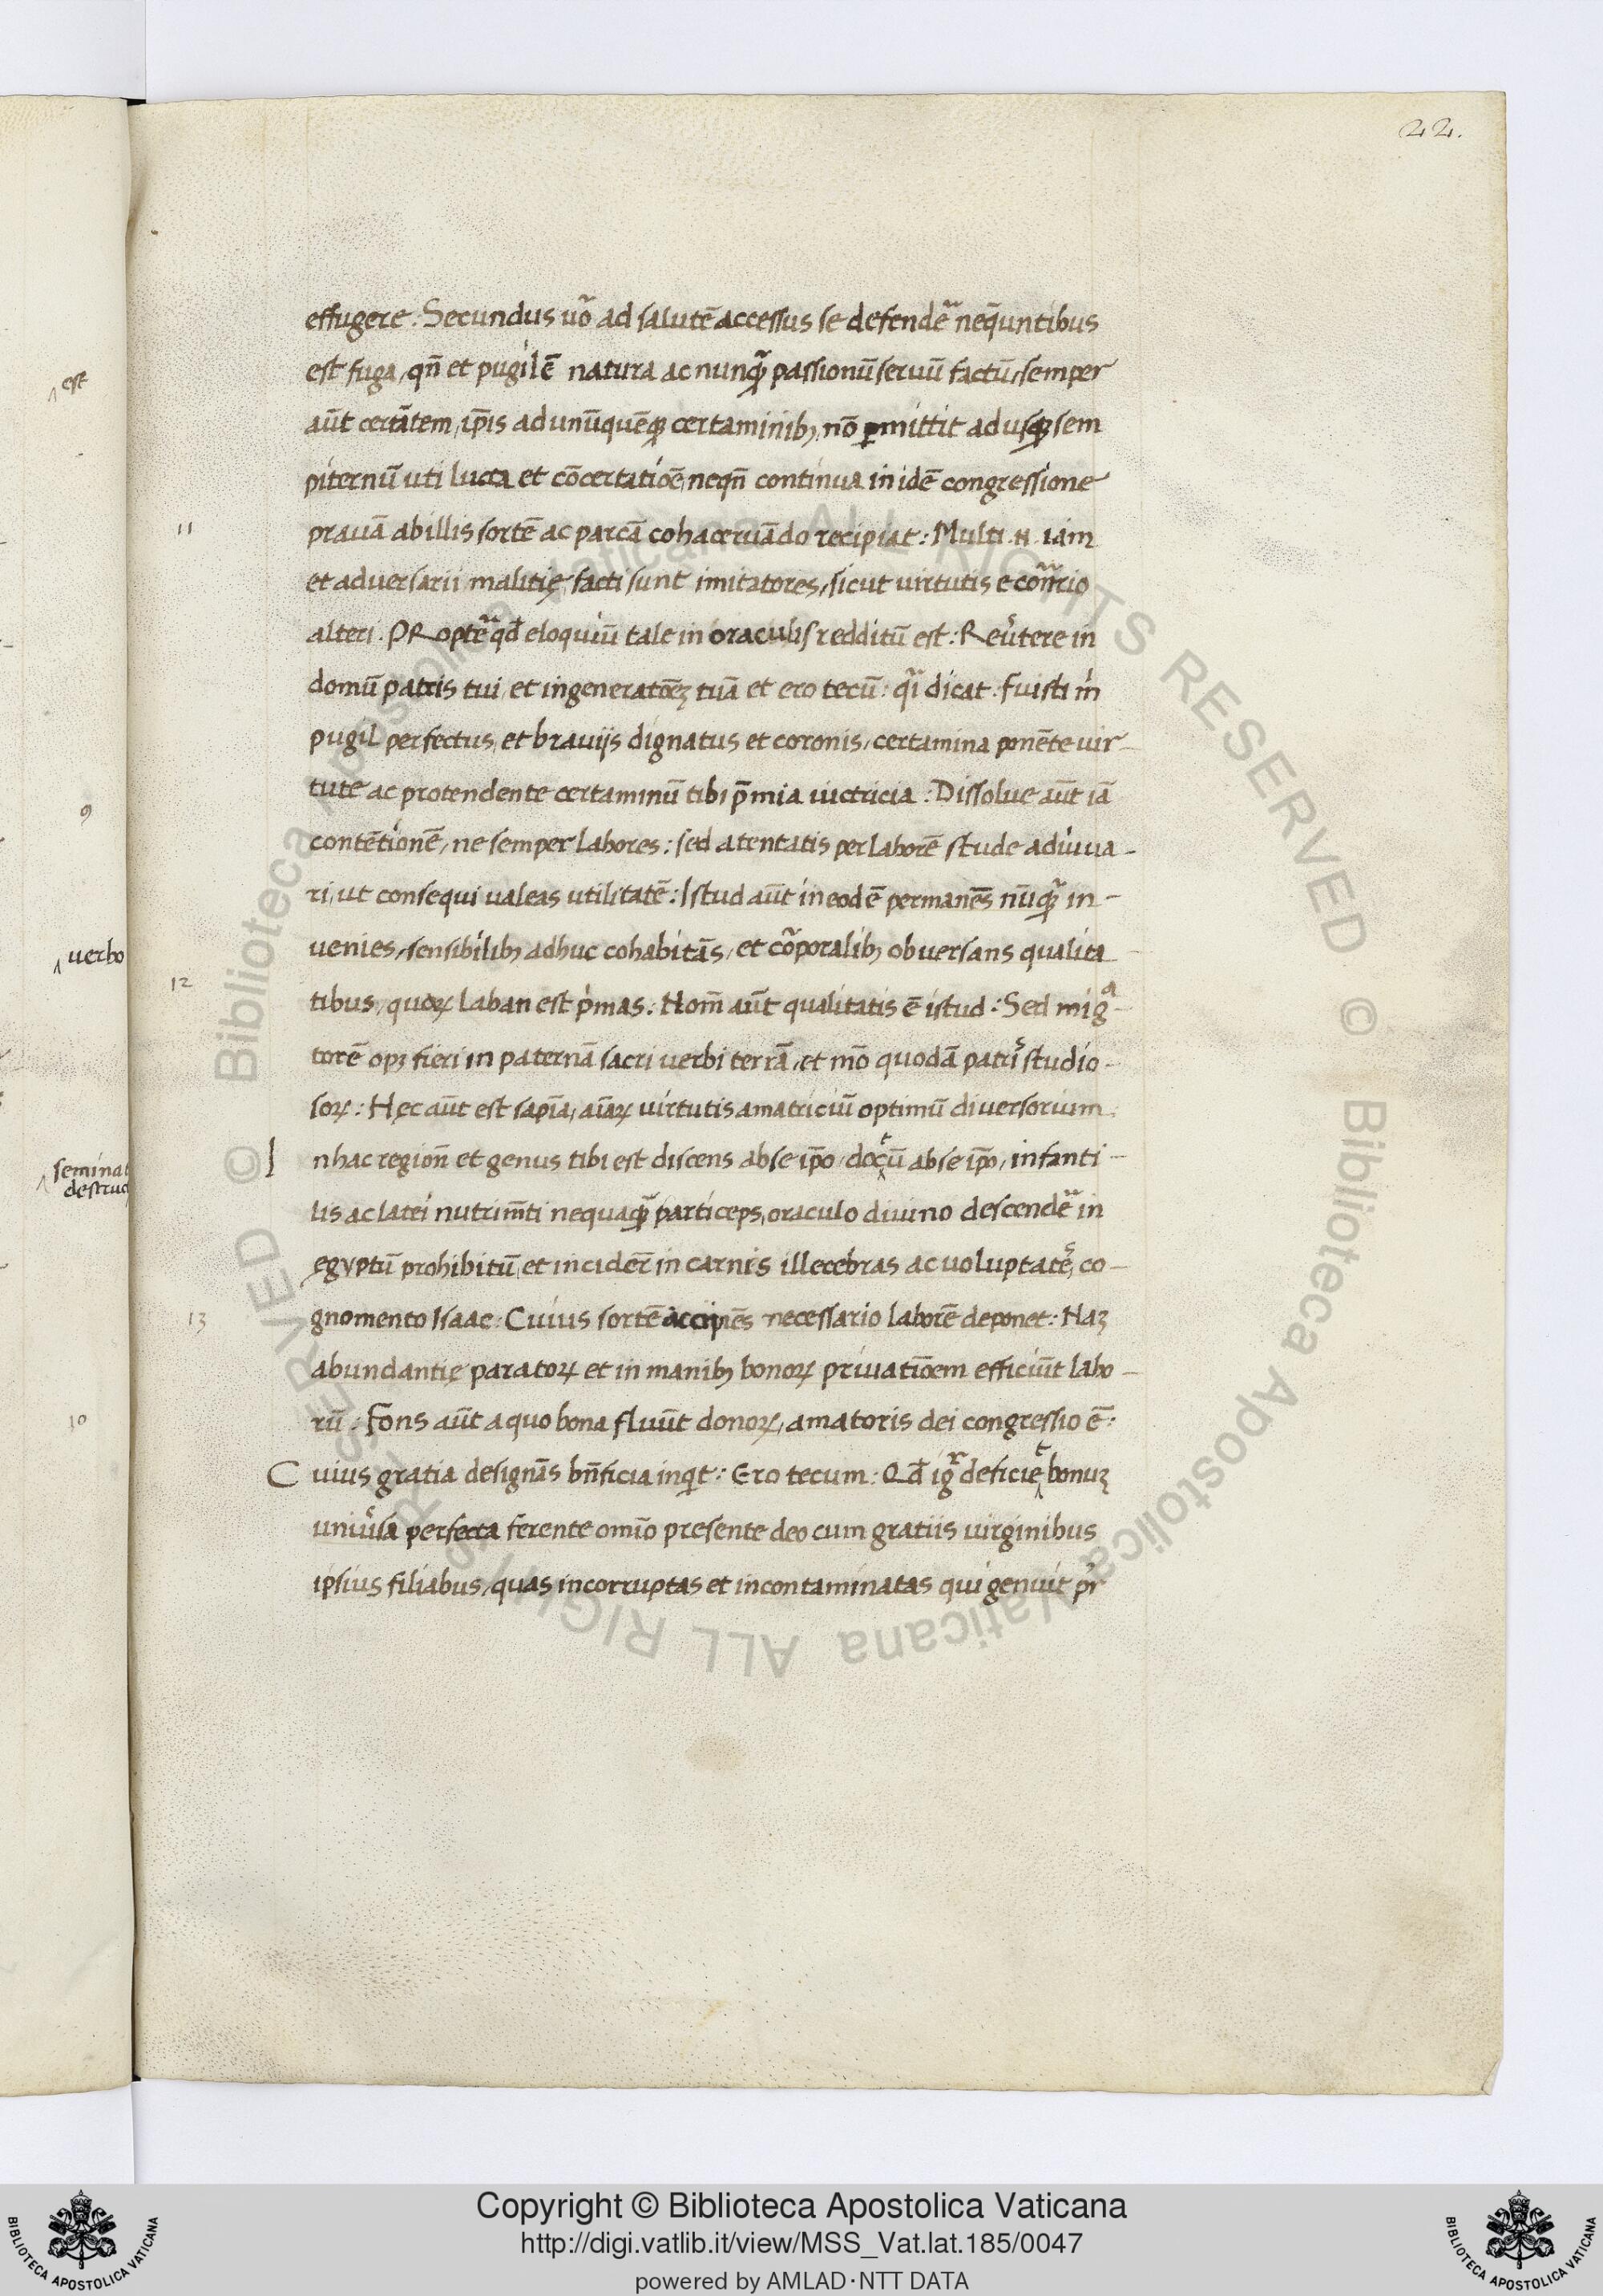 22.
est
effugere: Secundus uo᷃ ad salutē accessus se defendē᷃ neq̄untibus
est fuga, qn̄ et pugil ē natura ac nunqꝫ᷃ passionū seruū factū, semper
aūt certātem, ip̄is ad unūquēqꝫ certaminibꝫ, nō ꝑmittit ad usqꝫ sem
piternū uti lucta et cōcertatiōē, neqn̄ continua in idē congressione
11
prauā ab illis sortē ac parcā cohaceruādo recipiat: Multi .N. iam
et adversarii malitię facti sunt imitatores, sicut uirtutis e cōn᷃rio
alteri. PRoptē᷃ qđ eloquiū tale in oraculis redditū est: Reu᷃tere in
domū patris tui, et in generatōēꝫ tuā et ero tecū: q᷃i dicat. Fuisti m̍
pugil perfectus, et brauijs dignatus et coronis, certamina ponēte uir-
tute ac protendente certaminū tibi p̄mia uictricia: Dissolue aūt iā
9
contētionē, ne semper labores: sed a tentatis per laborē stude adiuua-
ri, ut consequi ualeas utilitatē: Istud aūt in eodē permanēs nūqꝫ᷃ in-
verbo
uenies, sensibilibꝫ adhuc cohabitās, et co᷃poralibꝫ obuersans qualita-
12
tibus, quoꝝ Laban est p̍mas: Nom̄ aūt qualitatis ē istud: Sed migᵃ-
torē opꝫ fieri in paternā sacri verbi terrā, et mō quodā patrı᷃ studio-
soꝝ: Hęc aūt est sapīa, aīaꝝ uirtutis amatriciū optimū diuersorium.
seminat
destruc
In hac region̄ et genus tibi est discens ab se ip̄o, docᵗū ab se ip̄o, infanti-
lis ac latei nutrim̄ti nequaqꝫ᷃ particeps, oraculo diuino descendē᷃ in
egyptū prohibitū, et incider̄ in carnis illecebras ac uoluptatē᷃, co-
13
gnomento Isaac: Cuius sortē accipiēs necessario laborē deponet: Naꝫ
abundantię paratoꝝ et in manibꝫ bonoꝝ priuatiōem efficiūt labo-
10
rū: Fons aūt a quo bona fluūt donoꝝ, amatoris dei congressio ē:
Cuius gratia designās bn̄ficia inqͥt: Ero tecum: Qđ igʳ deficieᵗ bonuꝫ
uniu᷃sa perfecta ferente omīo presente deo cum gratiis uirginibus
ipsius filiabus, quas incorruptas et incontaminatas qui genuit pr̄
Copyright © Biblioteca Apostolica Vaticana
http://digi.vatlib.it/view/MSS_Vat.lat.185/0047
powered by AMLAD·NTT DATA
BIBLIOTECA APOSTOLICA VATICANA
BIBLIOTECA APOSTOLICA VATICANA
© Biblioteca Apostolica Vaticana ALL RIGHTS RESERVED © Biblioteca Apostolica Vaticana ALL RIGHTS RESERVED